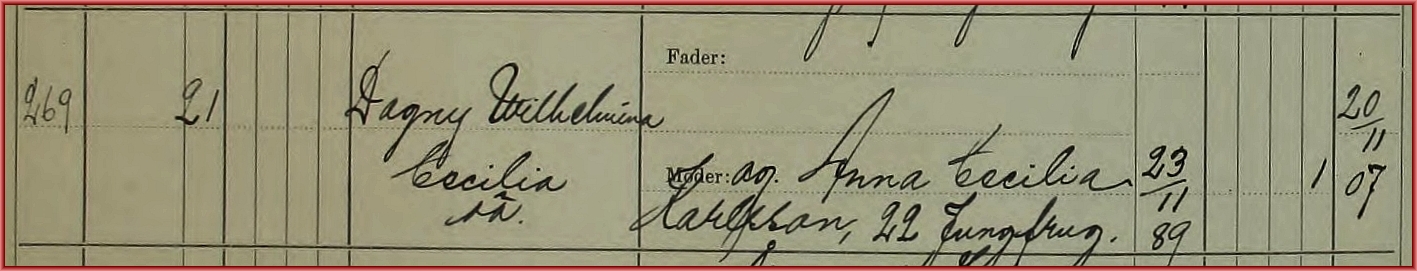 Fader:
269 21 Dagny Wilhelmina 20/11
Cecilia Moder: og. Anna Cecilia 23/11 1 07
oä. Karlsson, 22 Jungfrug. 89